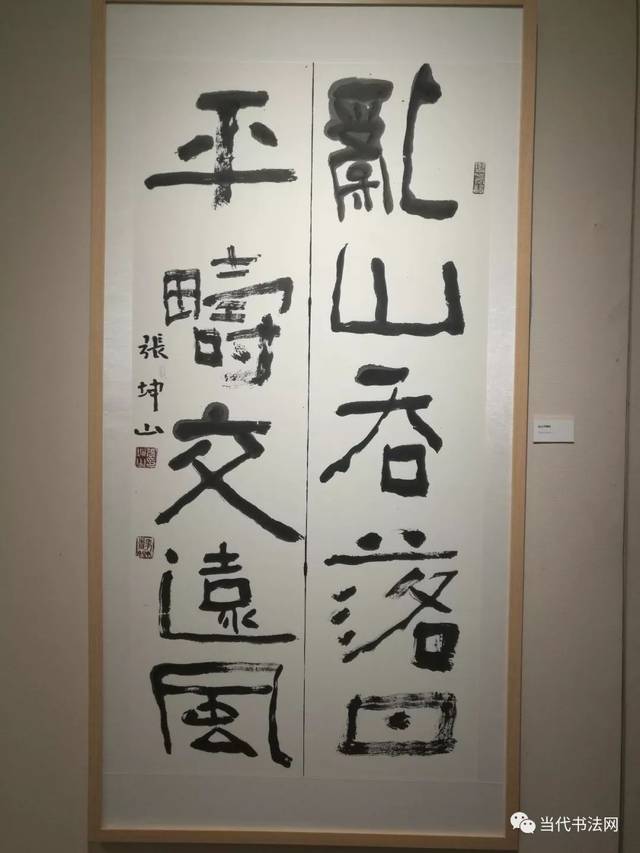 亂山吞落日
平疇交遠風
張坤山
当代书法网